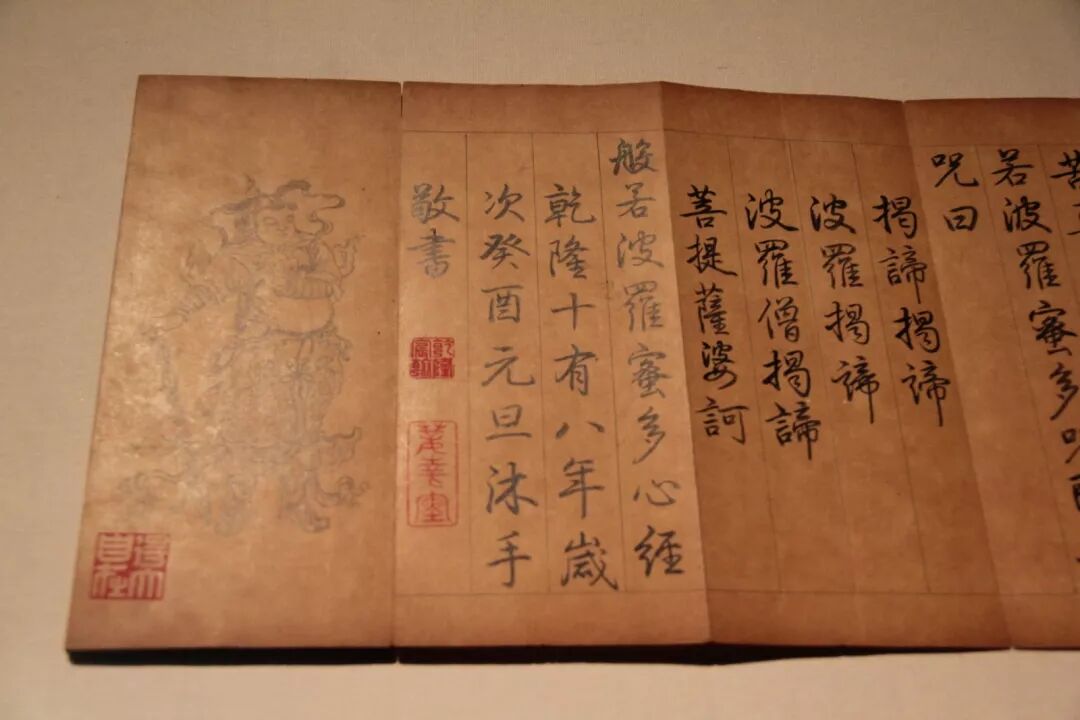 若波羅蜜多呪
呪曰
揭諦揭諦
波羅揭諦
波羅僧揭諦
菩提薩婆訶
般若波羅蜜多心經
乾隆十有八年歲
次癸酉元旦沐手
敬書
乾隆宸翰